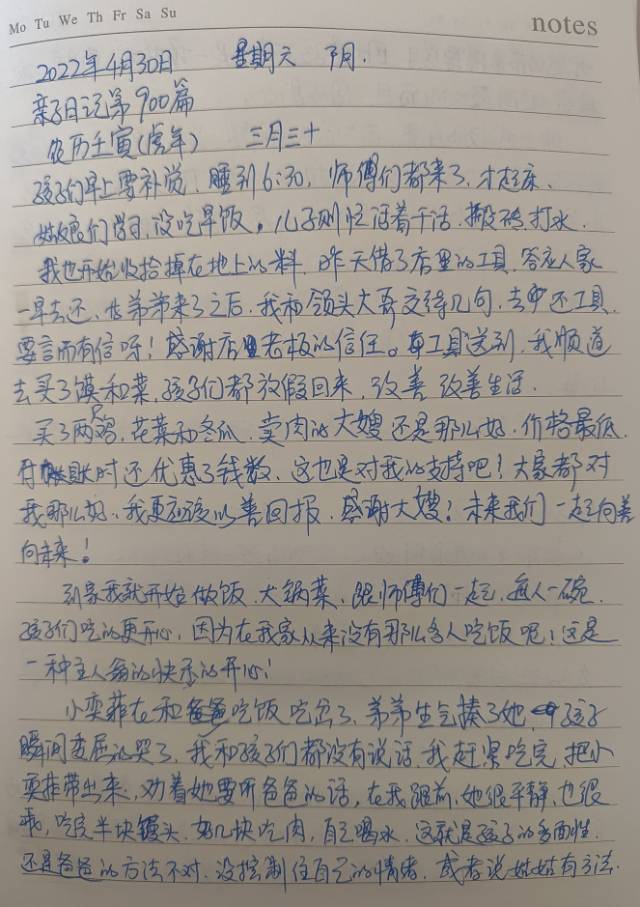 Mo Tu We Th Fr Sa Su
notes
2022年4月30日 星期六 阴.
亲子日记第900篇
农历壬寅(虎年) 三月三十
孩子们早上要补觉,睡到6:30,师傅们都来了,才起床、
姑娘们学习,没吃早饭。儿子则忙活着干活.搬砖,打水.
我也开始收拾掉在地上的料,昨天借了店里的工具,答应人家
一早去还,在弟弟来了之后,我和领头大哥交待几句,去还工具.
要言而有信呀!感谢店里老板的信任。工具送到,我顺道
去买了馍和菜,孩子们都放假回来,改善改善生活.
买了两,花菜和冬瓜,卖肉的大嫂还是那么好.价格最低.
付账时还优惠了钱数,这也是对我的支持吧!大家都对
我那么好,我更应该以善回报,感谢大嫂!未来我们一起向善
向未来!
到家我就开始做饭,大锅菜,跟师傅们一起,每人一碗.
孩子们吃的更开心,因为在我家从来没有那么多人吃饭呢!这是
一种主人翁的快乐的开心!
小奕菲在和爸爸吃饭吃岔了,弟弟生气揍了她,孩子
瞬间委屈的哭了,我和孩子们都没有说话.我赶紧吃完,把小
奕菲带出来,劝着她要听爸爸的话,在我跟前,她很平静,也很
乖,吃完半块馒头,好几块吃肉,自己喝水,这就是孩子的多面性.
还是爸爸的方法不对.没控制住自己的情绪,或者说姑姑有方法.